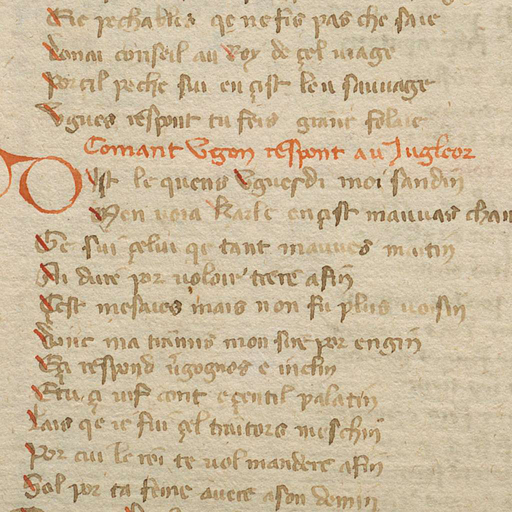 Et ie pechables qe ne fis pas che sue
Donai conseil au Roy de cel uiage
Por cil peche sui en cist leu sauuage
Vgues respont tu feis grant folaie
Comant Vgon respont au Jugleor
Dist le quens Vgues di moi sandin
Men uoia Karle en cist mauuais chan
Ge sui celui qe tant mauues matin
Ai duré por uoloir trere a fin
Cest mesaies mais non fu plus uoisin
Donc ma tramis mon sire por engin
Eci respond uergognos e inclin
Etu ci uif cont e gentil palatin
Lais qe ie fui cel traitors meschin
Por cui le roi te uol mandere a fin
Sol por ta feme auere a son demin